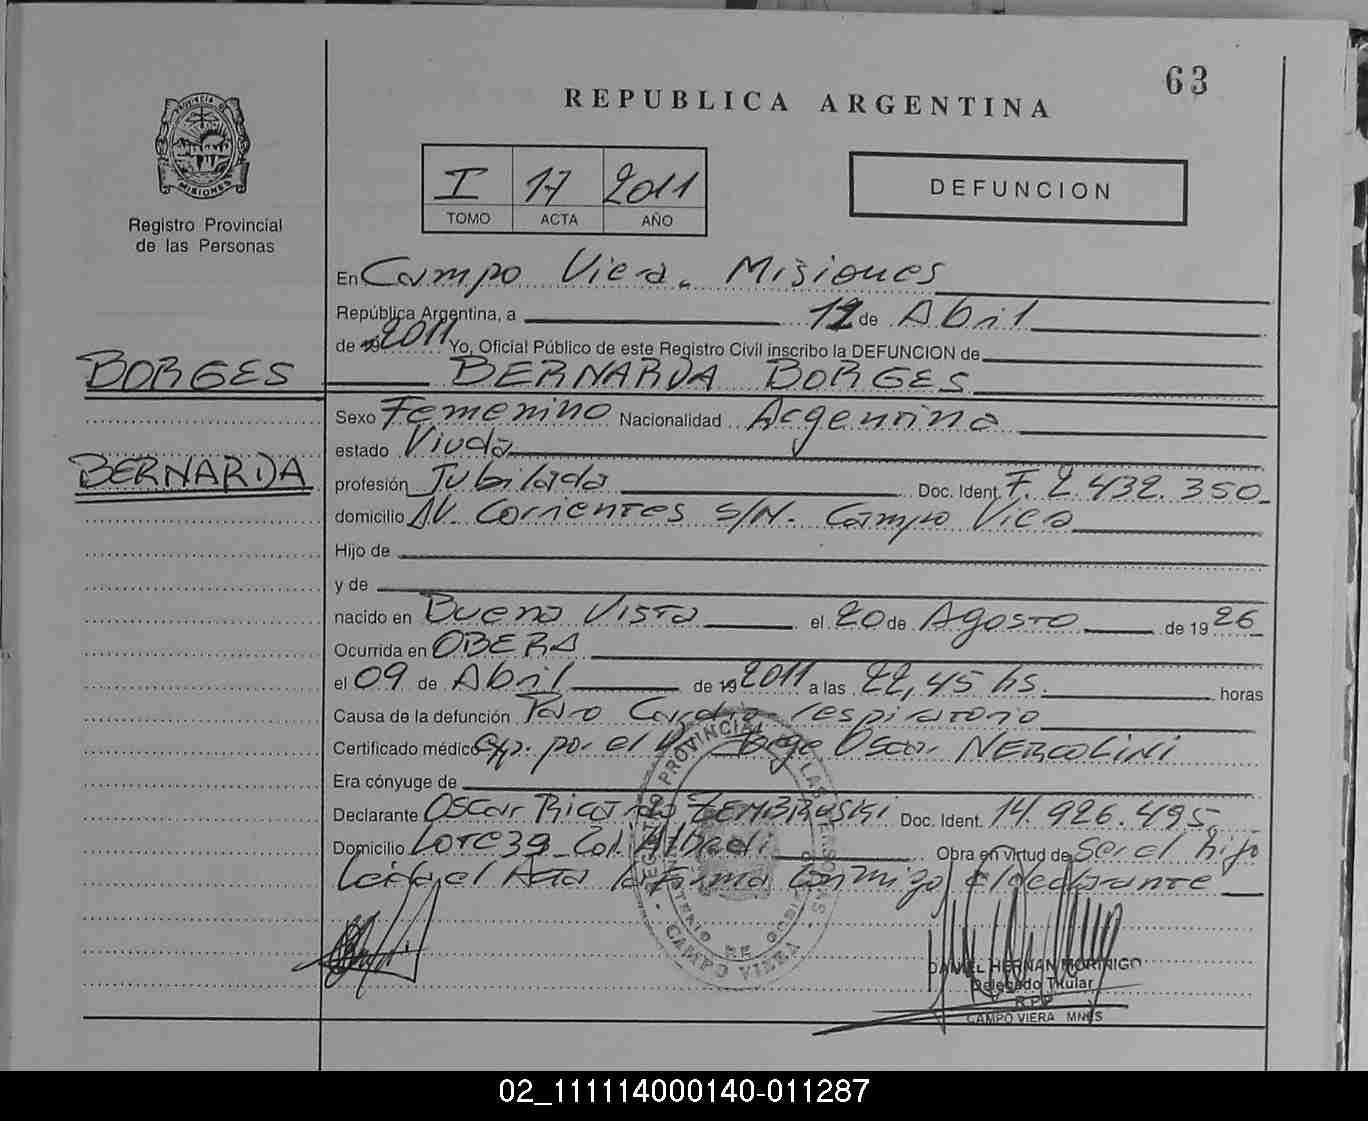 63
REPUBLICA ARGENTINA
PROVINCIA DE
MISIONES
Registro Provincial
de las Personas
I 17 2011
TOMO ACTA AÑO
DEFUNCION
En Campo Viera. Misiones
República Argentina, a 12 de Abril
de 19 2011 Yo, Oficial Público de este Registro Civil inscribo la DEFUNCION de
BORGES
BERNARDA BORGES
Sexo Femenino Nacionalidad Argentina
estado Viuda
BERNARDA
profesión Jubilada Doc. Ident. F. 2.432.350
domicilio AV. Corrientes S/N. Campo Viera
Hijo de
y de
nacido en Buena Vista el 20 de Agosto de 1926
Ocurrida en OBERA
el 09 de Abril de 19 2011 a las 22,45 hs. horas
Causa de la defunción Paro Cardio respiratorio
Certificado médico Exp. por el Jorge Oscar NERCOLINI
Era cónyuge de
Declarante Oscar Ricardo ZEMBRUSKI Doc. Ident. 14.926.495
Domicilio Lote 39 Col. Alberdi Obra en virtud de Ser el hijo
Leida el Acta la firma Conmigo el declarante
REGISTRO PROVINCIAL DE LAS PERSONAS
MINISTERIO DE GOBIERNO
CAMPO VIERA
DANIEL HERNAN MORINIGO
Delegado Titular
R.P.P.
CAMPO VIERA MNES
02_111114000140-011287